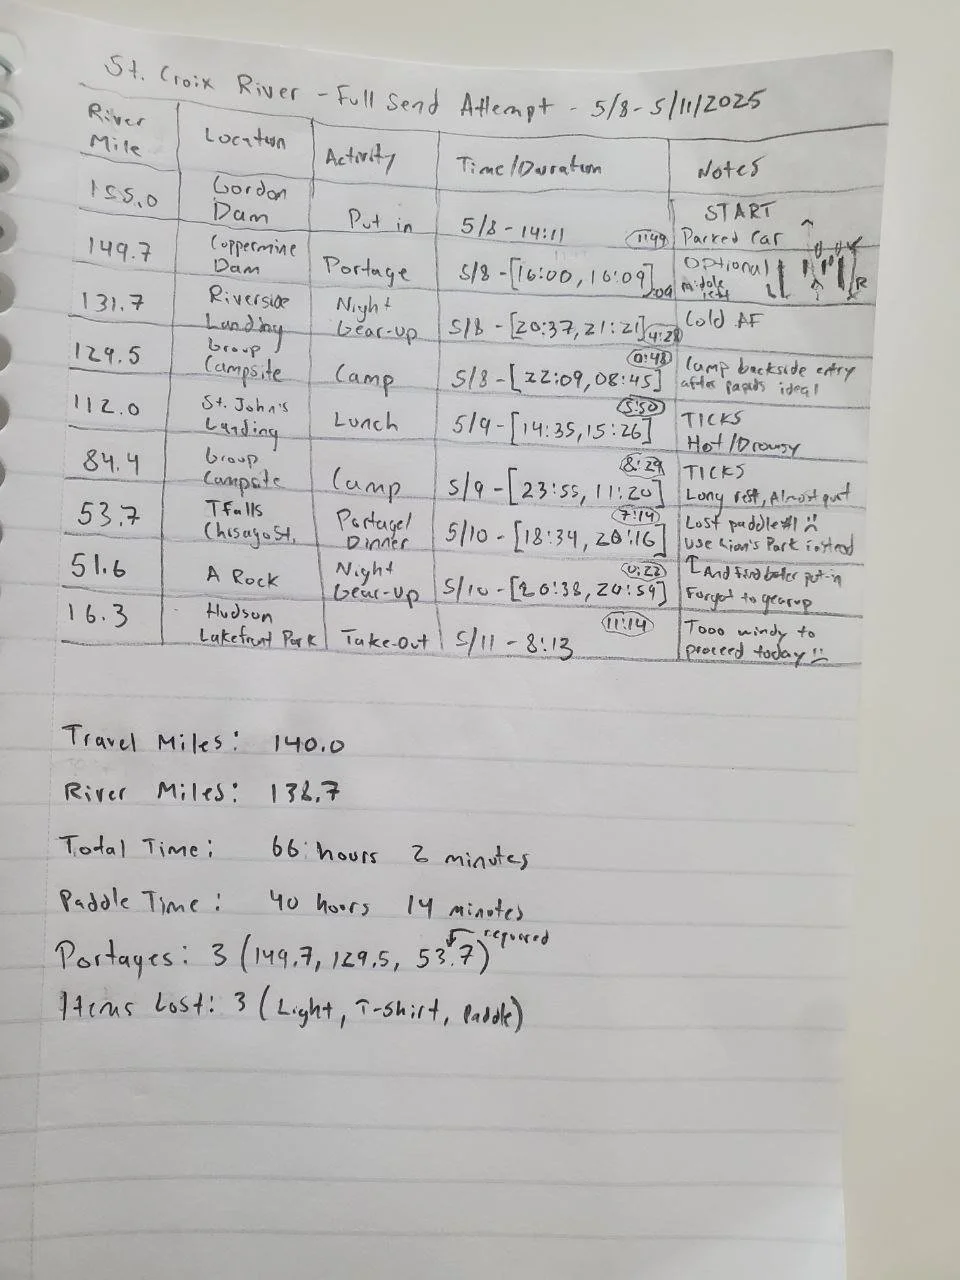 St. Croix River - Full Send Attempt - 5/8-5/11/2025
River Mile | Location | Activity | Time/Duration | Notes
155.0 | Gordon Dam | Put in | 5/8 - 14:11 | START Parked Car
149.7 | Coppermine Dam | Portage | 5/8 - [16:00, 16:09] 1:49 :09 | Optional middle left L R
131.7 | Riverside Landing | Night Gear-up | 5/8 - [20:37, 21:21] 4:28 | Cold AF
129.5 | Group Campsite | Camp | 5/8 - [22:09, 08:45] 0:48 | Camp backside entry after rapids ideal
112.0 | St. John's Landing | Lunch | 5/9 - [14:35, 15:26] 5:50 | TICKS Hot/Drowsy
84.4 | Group Campsite | Camp | 5/9 - [23:55, 11:20] 8:29 | TICKS Long rest, Almost quit
53.7 | TFalls Chisago St. | Portage/ Dinner | 5/10 - [18:34, 20:16] 7:14 | Lost paddle #1 :( Use Lion's Park instead
51.6 | A Rock | Night Gear-up | 5/10 - [20:38, 20:59] 0:22 | ↑ And find better put-in Forgot to gear up
16.3 | Hudson Lakefront Park | Take-out | 5/11 - 8:13 11:14 | Tooo windy to proceed today !!
Travel Miles: 140.0
River Miles: 138.7
Total Time: 66 hours 2 minutes
Paddle Time: 40 hours 14 minutes
Portages: 3 (149.7, 129.5, 53.7) required
Items Lost: 3 (Light, T-shirt, Paddle)